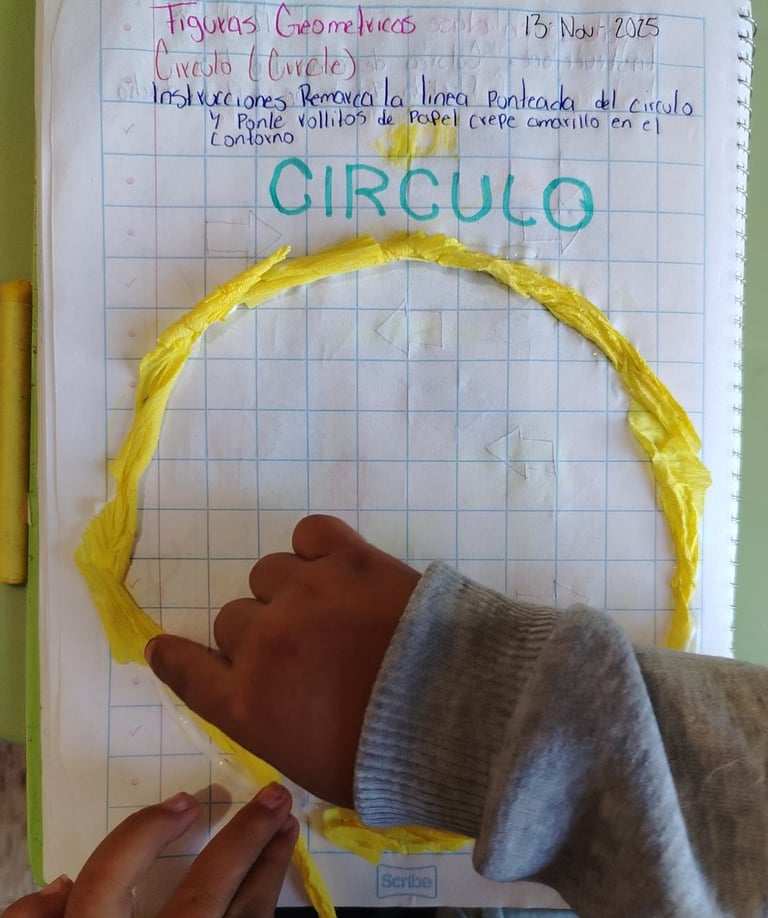 Figuras Geometricos 13 Nov - 2025
Circulo (Circle)
Instrucciones Remarca la linea Ponteada del circulo
Y Ponle rollitos de Papel crepe amarillo en el
Contorno
CIRCULO
Scribe